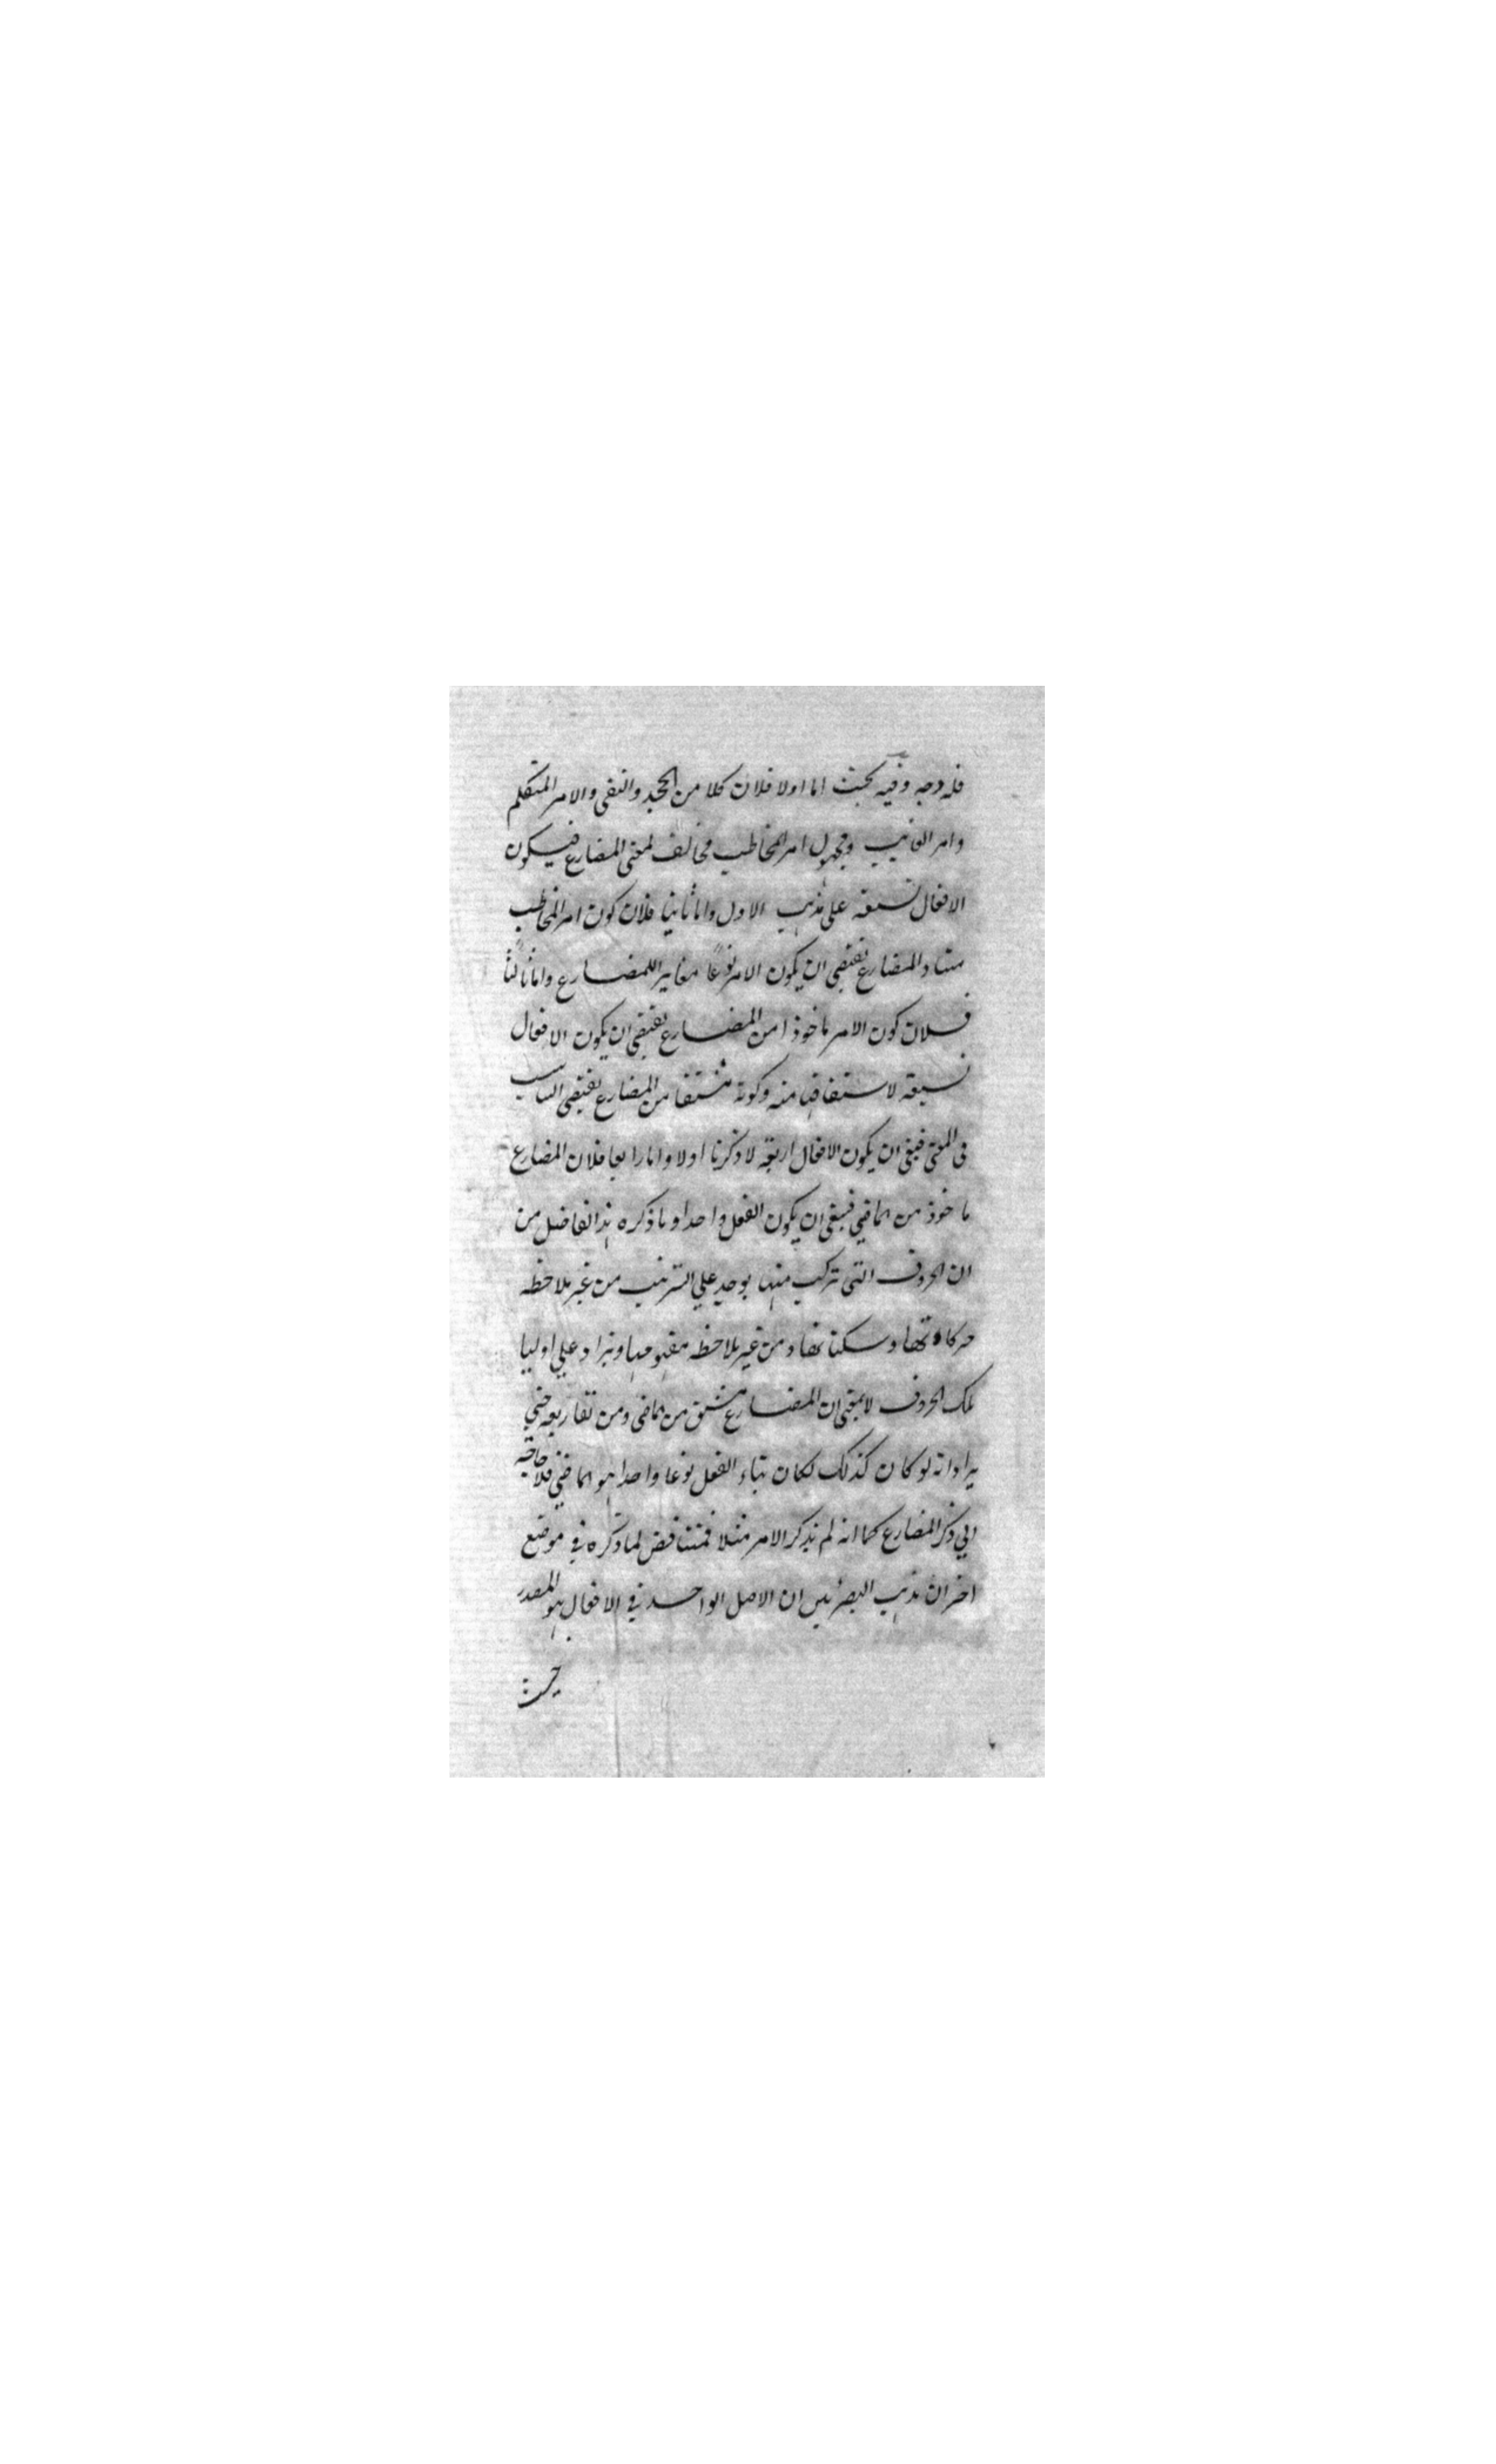 فله وجه وفيه بحث اما اولا فلان كلا من الجحد والنفي والامر المتكلم
وامر الغايب ومجهول امر المخاطب مخالف لمعنى المضارع فيكون
الافعال تسعة على مذهب الاول واما ثانيا فلان كون امر المخاطب
المضارع يقتضي ان يكون الامر نوعًا مغايرا للمضارع واما ثالثا
فلان كون الامر ماخوذا من المضارع يقتضي ان يكون الافعال
تسعة لاشتقاقها منه وكونه مشتقا من المضارع يقتضي التناسب
في المعنى فينبغي ان يكون الافعال اربعة لا ذكرنا اولا واما رابعا فلان المضارع
ماخوذ من الماضي فينبغي ان يكون الفعل واحدا وما ذكره هذا الفاضل من
ان الحروف التي تركب منها يوجد علي الترتيب من غير ملاحظه
حركاتها وسكناتها ومن غير ملاحظه مفهومها ويزاد علي اوليا
تلك الحروف لا بمعنى ان المضارع مشتق من الماضي ومن تفاريعه حتي
يراد انه لو كان كذلك لكان بناء الفعل نوعا واحدا هو الماضي فلا حاجة
الي ذكر المضارع كما انه لم يذكر الامر مثلا فمتناقض لما ذكره في موضع
اخر ان مذهب البصريين ان الاصل الواحد في الافعال هو المصدر
حيث